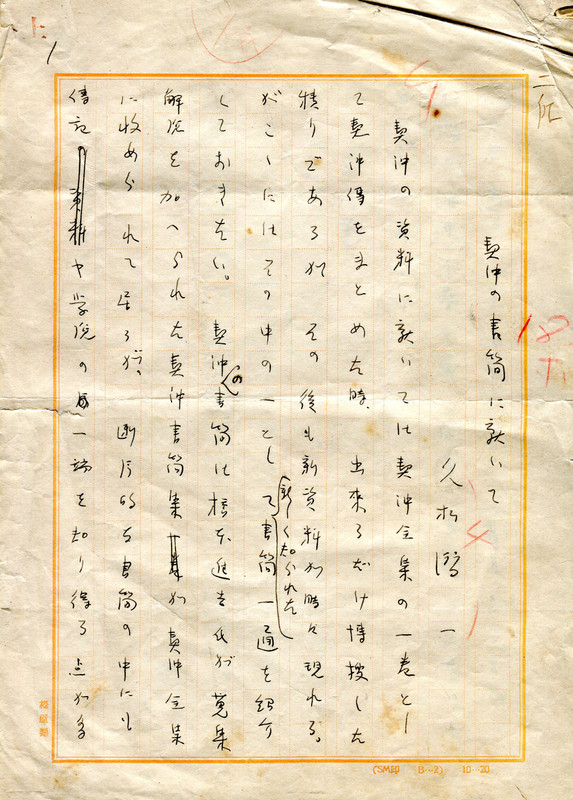 契沖の書簡に就いて
久松潜一
契沖の資料に就いては契沖全集の一巻とし
て契沖傳をまとめた時、出來るだけ博捜した
積りであるが その後も新資料が時々現れる。
がこゝにはその中の一として新しく知られた書簡一通を紹介
しておきたい。 契沖の書簡は橋本進吉氏が蒐集
解説を加へられた契沖書簡集が契沖全集
に收められて居るが、断片的な書簡の中にも
傳記や学説の一端を知り得る点が多
(SM印 B-2) 10-20